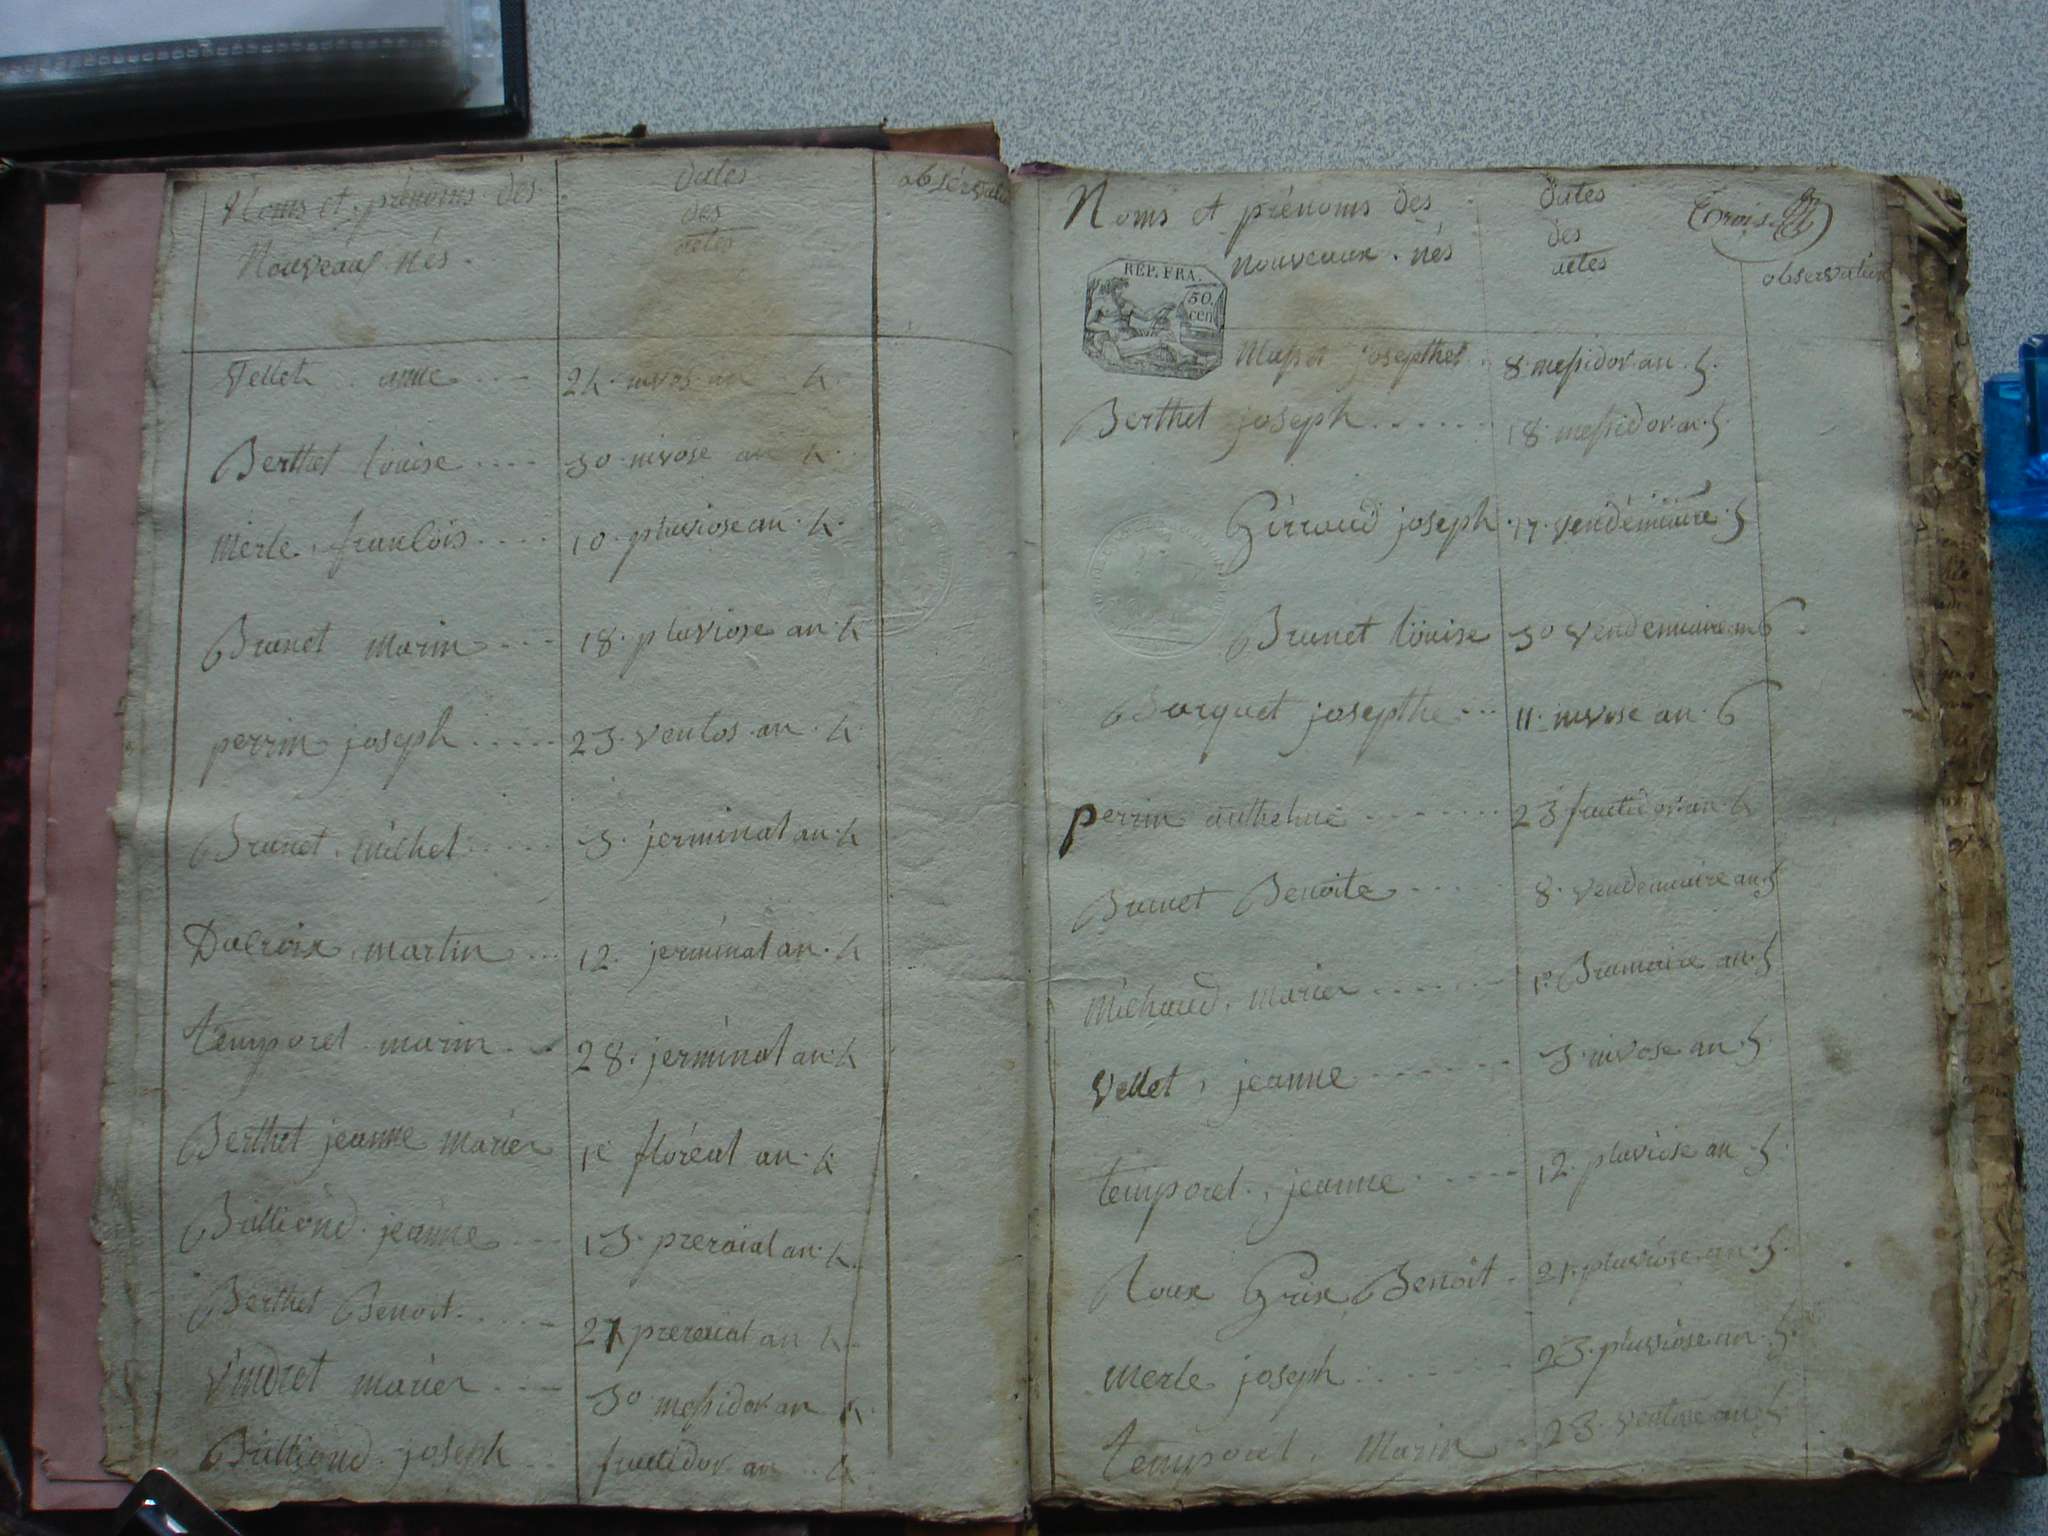 Noms et prénoms des
Nouveaux nés.
dates
des
actes
observation
Vellet anne .... 24. nivos an 4.
Berthet louise .... 30 nivose an 4.
Merle, francois .... 10. pluviose an. 4.
Brunet marin .... 18. pluviose an. 4
perrin joseph ..... 23. ventos. an. 4.
Brunet, michel ..... 3. jerminal an. 4
Dacroix, martin ... 12. jerminal an. 4
temporel marin ... 28. jerminal an. 4
Berthet jeanne marier 1e floréal an. 4.
Bulliond. jeanne ... 13. preraial an. 4.
Berthet Benoit. .... 27 prereial an 4.
Vindret marier .... 30 messidor an 4.
Bulliond. joseph ... fructidor an .. 4.
Noms et prénoms des
nouveaux. nés
dates
des
actes
Trois.
observation
REP. FRA.
50.
cen
Masset josepthet. 8. messidor an. 5.
Berthet joseph ...... 18. messidor an. 5.
Girroud joseph. 17. vendémiaire. 5
Brunet louise 30 vendemiaire an 6.
Borquet josepthe ... 11. nivose an. 6
perrin anthelme ........ 23 fructidor an. 4
Brunet Benoite ..... 8. vendemiaire an. 5
Michaud, marier ...... 1e. Brumaire an. 5
Vellet, jeanne ...... 3. nivose an. 5.
temporel., jeanne ..... 12. pluviose an. 5.
Roux Grix Benoit. 21. pluviose. an. 5.
Merle joseph ...... 23. pluviose an. 5.
temporel, Marin .. 23. ventose an. 5.